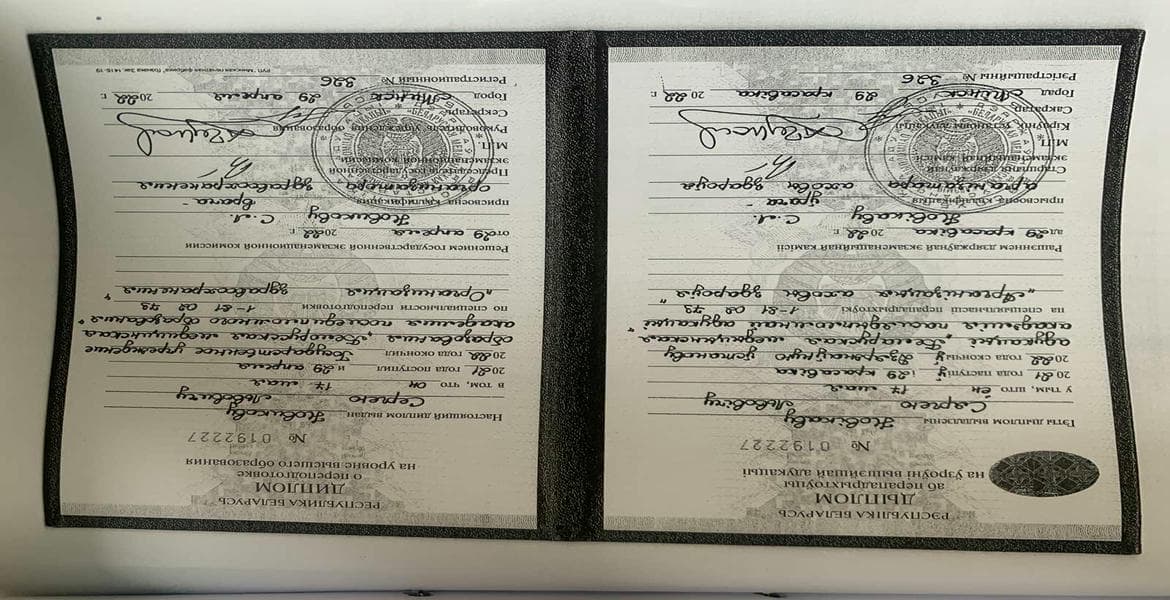 РЭСПУБЛІКА БЕЛАРУСЬ
ДЫПЛОМ
аб перападрыхтоўцы
на ўзроўні вышэйшай адукацыі
№ 0192227
Гэты дыплом выдадзены Новікаву
Сяргею Львовічу
у тым, што ён 17 мая
2021 года паступіў і 29 красавіка
2022 года скончыў Дзяржаўную ўстанову
адукацыі „Беларуская медыцынская
акадэмія паслядыпломнай адукацыі"
па спецыяльнасці перападрыхтоўкі 1-81 02 73
„Арганізацыя аховы здароўя"
Рашэннем дзяржаўнай экзаменацыйнай камісіі
ад 29 красавіка 2022 г.
Новікаву С.Л.
прысвоена кваліфікацыя ўрача-
арганізатара аховы здароўя
Старшыня дзяржаўнай
экзаменацыйнай камісіі
М.П.
Кіраўнік установы адукацыі
Сакратар
Горад Мінск 29 красавіка 2022 г.
Рэгістрацыйны № 326
РЕСПУБЛИКА БЕЛАРУСЬ
ДИПЛОМ
о переподготовке
на уровне высшего образования
№ 0192227
Настоящий диплом выдан Новикову
Сергею Львовичу
в том, что он 17 мая
2021 года поступил и 29 апреля
2022 года окончил Государственное учреждение
образования „Белорусская медицинская
академия последипломного образования"
по специальности переподготовки 1-81 02 73
„Организация здравоохранения"
Решением государственной экзаменационной комиссии
от 29 апреля 2022 г.
Новикову С.Л.
присвоена квалификация врача-
организатора здравоохранения
Председатель государственной
экзаменационной комиссии
М.П.
Руководитель учреждения образования
Секретарь
Город Минск 29 апреля 2022 г.
Регистрационный № 326
РУП "Минская печатная фабрика" Гознака Зак. 1415-19